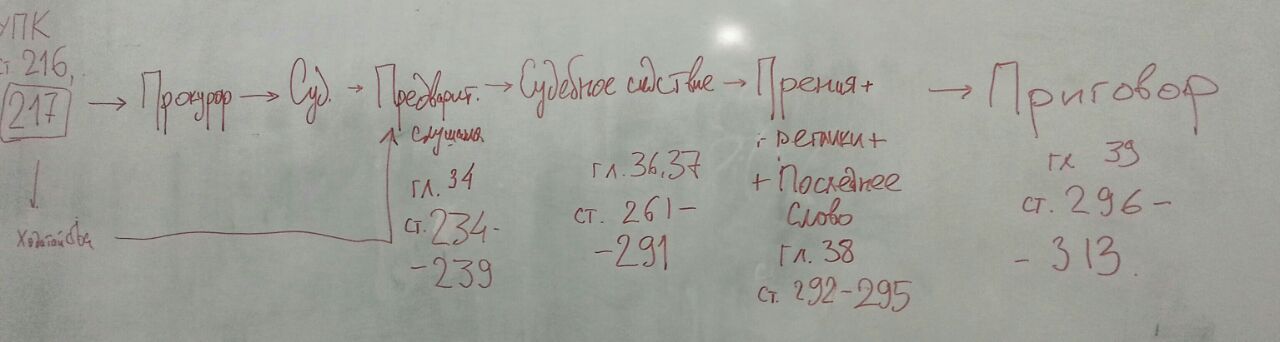 УПК
ст 216,
217 → Прокурор → Суд. → Предварит. → Судебное следствие → Прения+ → Приговор
слушания
гл. 34
ст. 234-
-239
гл. 36,37
ст. 261-
-291
+ реплики+
+ Последнее
слово
гл. 38
ст. 292-295
гл 39
ст. 296-
- 313.
Ходатайства